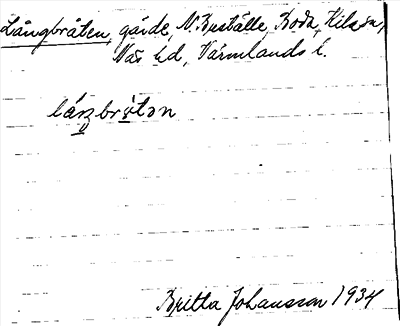 Långbråten, gärde, N. Borställe, Boda, Kils sn,
Näs hd, Värmlands l.
låŋbrɷ̀tən
Britta Johansson 1934